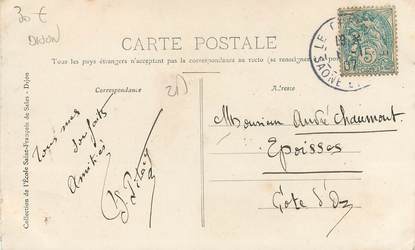 30 €
DIJON
CARTE POSTALE
Tous les pays étrangers n'acceptent pas la correspondance au recto (se renseigner
Correspondance
Adresse
Tous mes
souhaits
Amitiés
Monsieur André Chaumont
Epoisses
Côte d'Or
Collection de l'École Saint-François de Sales - Dijon
LE
SAÔNE
07
5